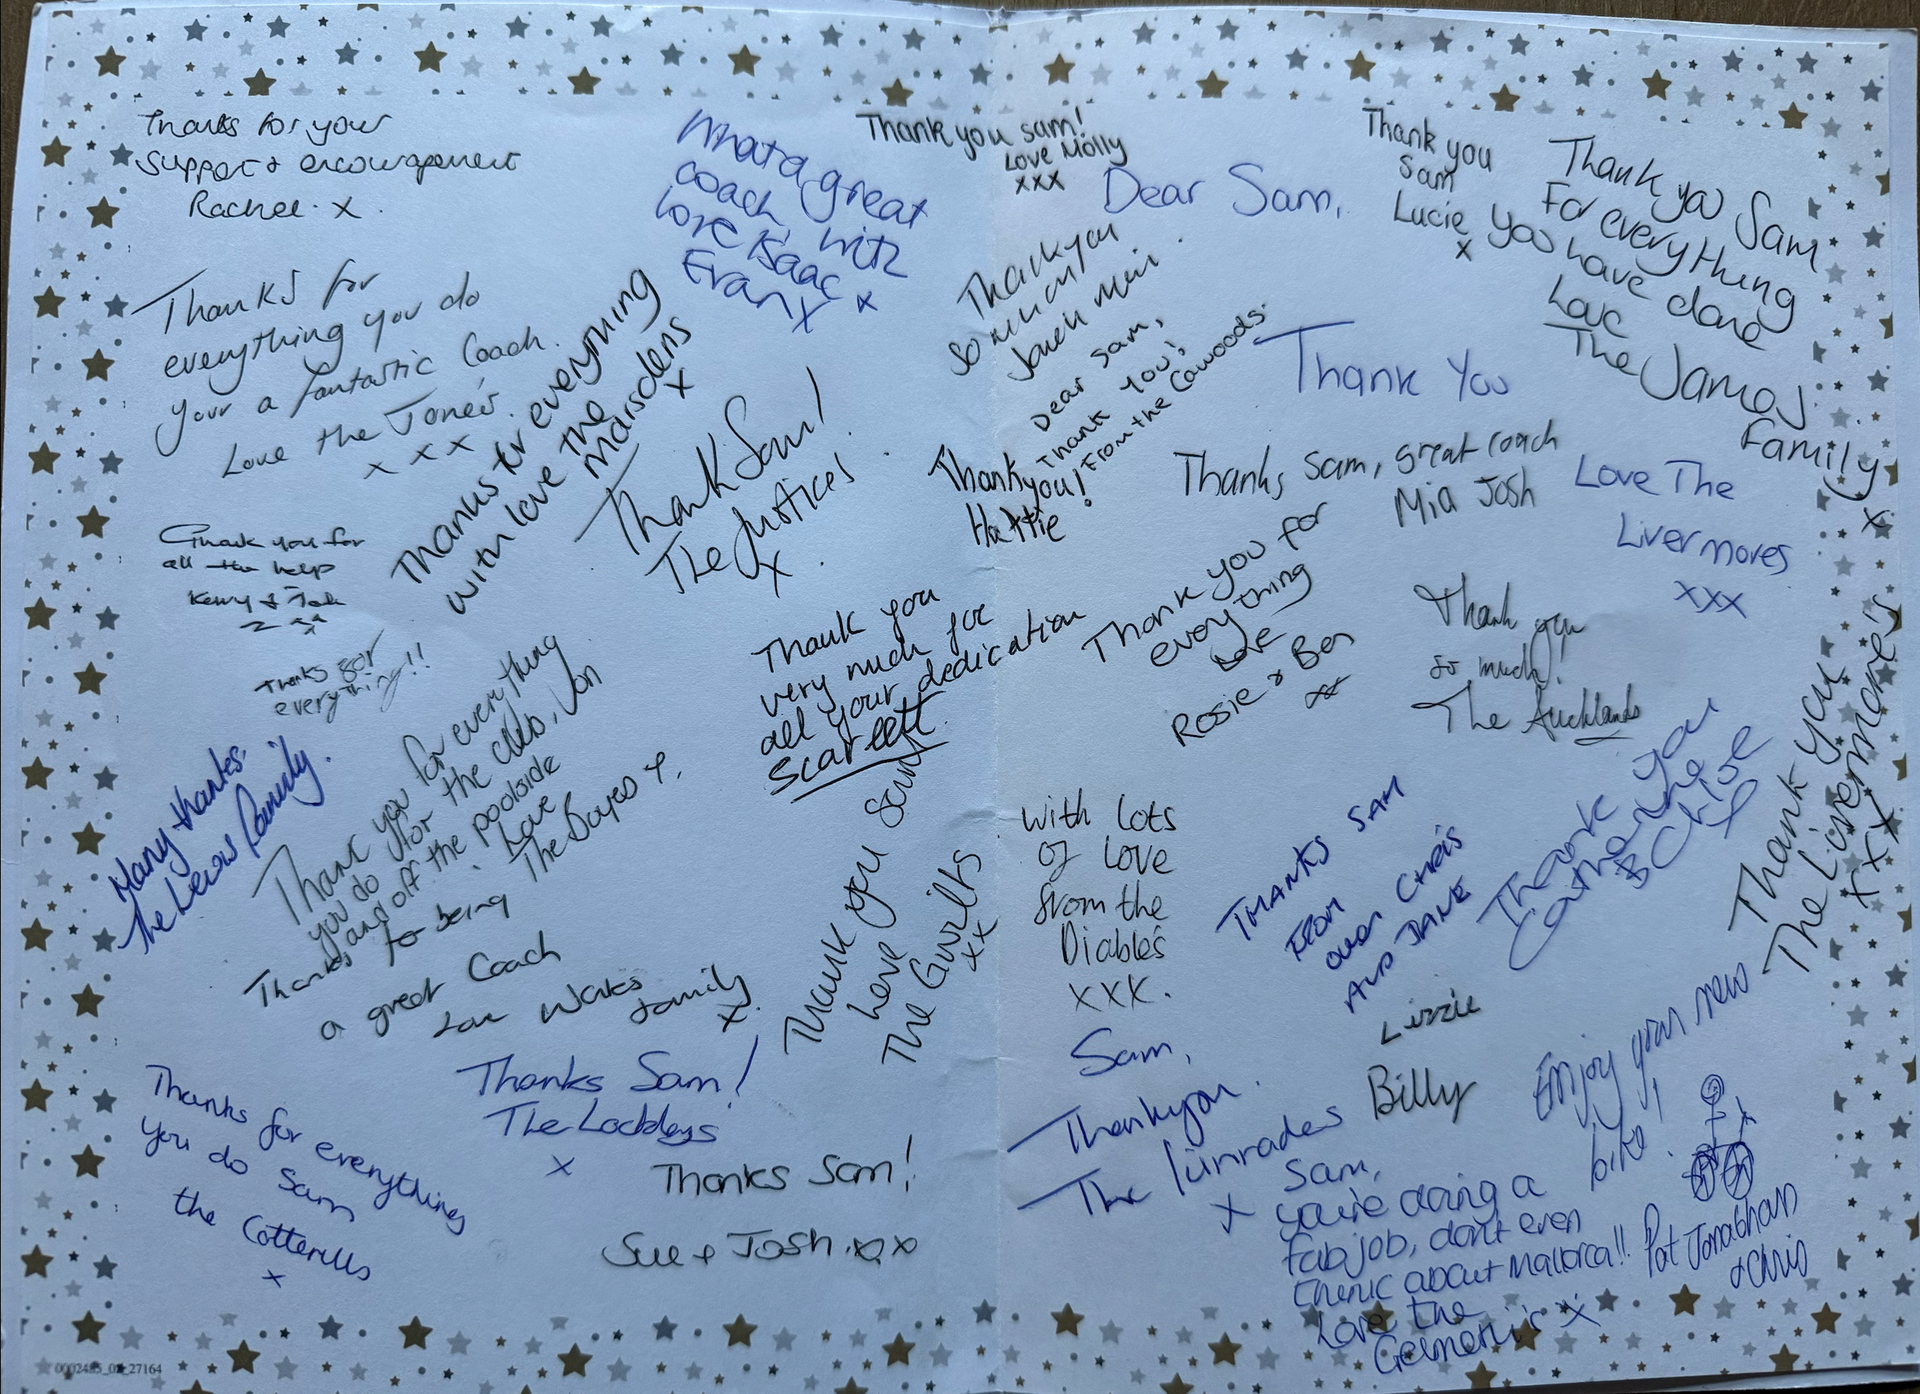 Thanks for your
Support & encouragement
Rachel. x.
What a great
coach, with
love Isaac
Evan x x
Thank you sam!
Love Molly
xxx
Dear Sam,
Thank You
Love The
Livermores
xxx
Thank you
Sam
Lucie
x
Thank you Sam
For everything
You have done
Love
The James
Family
x
Thanks for
everything you do
your a fantastic Coach.
Love the Jones.
x x x
Thanks for everything
with love the
Marsdens
x
Thank Sam!
The Justices
x
Thankyou
so much
Dear Sam,
Thank You!
From the Cawoods.
Thank
you!
Hattie
Thanks Sam, great coach
Mia Josh
Thank you for
all the help
Kerry &
Thanks for
everything!!
Many thanks.
The Lewis Family.
Thank you for everything
you do for the club, on
and off the poolside
Love
The Dayes x.
Thank you
very much for
all your dedication
Scarlett
Thank you for
everything
Love
Rosie & Ben
xx
Thank you
so much!
The Aucklands
Thanks for being
a great Coach
Love Works
family
x
Thank you Sam
Love
The Guilts
xx
With lots
of love
from the
Diables
xxx.
THANKS SAM
FROM
OWEN CHRIS
AND JANE
Thank you
Catherine
& Chloe
Thank you
The Livermore's
xxx
Lizzie
Billy
Thanks for everything
you do Sam
the Cotterills
x
Thanks Sam!
The Lockleys
x
Thanks Sam!
Sue & Josh. xxx
Sam,
Thankyou.
The
x
Enjoy your new
bike!
Pat Jonathan
& Chris
Sam,
you're doing a
fab job, don't even
think about Mallorca!!
Love the
x
0002485_02_27164